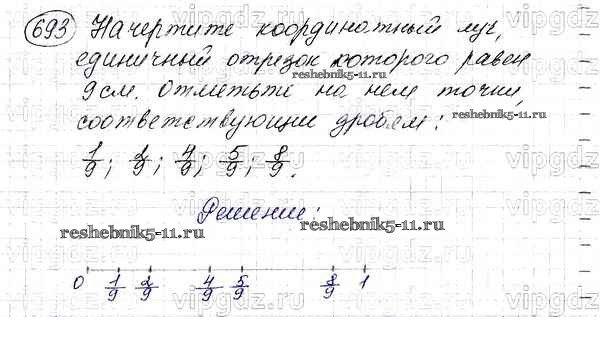 693 Начертите координатный луч,
единичный отрезок которого равен
9см. Отметьте на нем точки,
соответствующие дробям:
1/9; 2/9; 4/9; 5/9; 8/9.
Решение:
0 1/9 2/9 4/9 5/9 8/9 1
reshebnik5-11.ru
reshebnik5-11.ru
reshebnik5-11.ru
reshebnik5-11.ru
vipgdz.ru
vipgdz.ru
vipgdz.ru